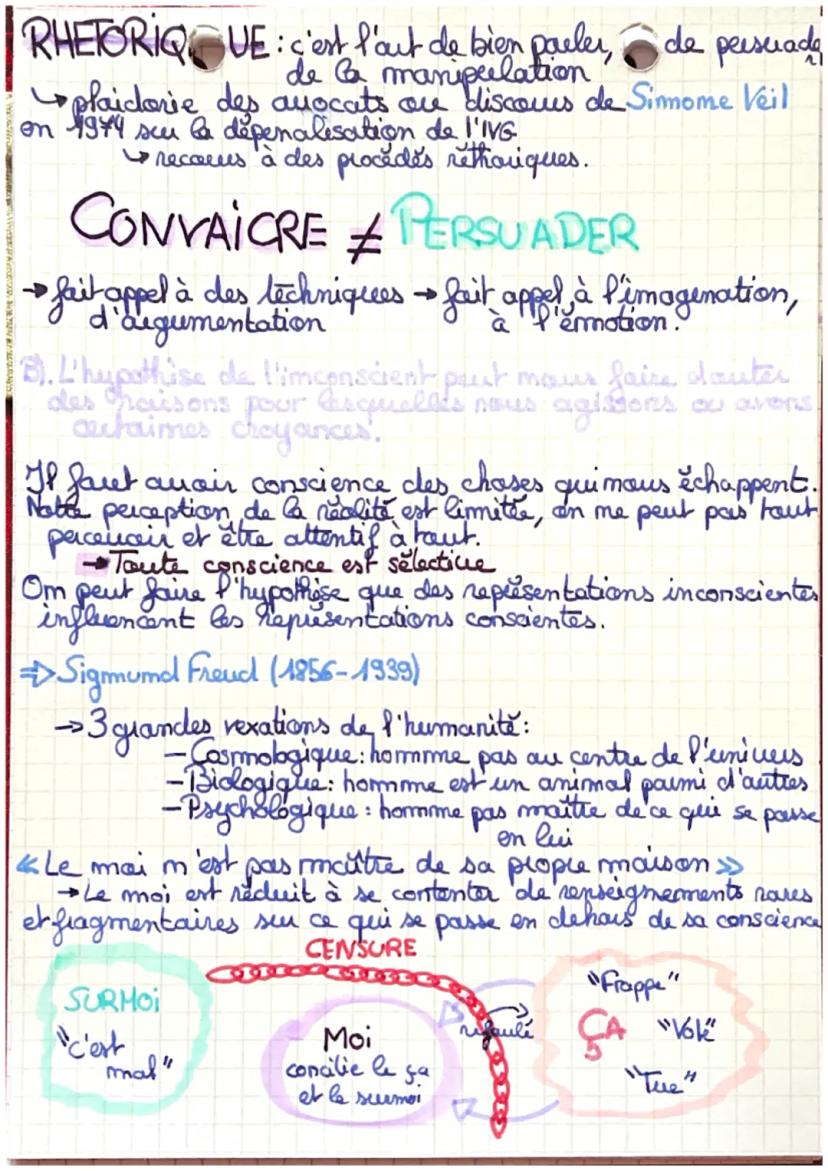 RHETORIQUE : c'est l'art de bien parler, de persuader
de la manipulation
↳ plaidorie des avocats ou discours de Simone Veil
en 1974 sur la dépenalisation de l'IVG
↳ recours à des procédés réthoriques.
CONVAICRE ≠ PERSUADER
→ fait appel à des techniques → fait appel à l'imagenation,
d'argumentation à l'émotion.
B). L'hypothèse de l'inconscient peut nous faire douter
des raisons pour lesquelles nous agissons ou avons
certaines croyances.
Il faut avoir conscience des choses qui nous échappent.
Notre perception de la réalité est limitée, on ne peut pas tout
percevoir et être attentif à tout.
→ Toute conscience est sélective
On peut faire l'hypothèse que des représentations inconscientes
influencent les représentations conscientes.
⇒ Sigmund Freud (1856-1939)
→ 3 grandes vexations de l'humanité :
— Cosmologique : homme pas au centre de l'univers
— Biologique : homme est un animal parmi d'autres
— Psychologique : homme pas maître de ce qui se passe
en lui
« Le moi n'est pas maître de sa propre maison »
→ Le moi est réduit à se contenter de renseignements rares
et fragmentaires sur ce qui se passe en dehors de sa conscience
CENSURE
SURMOI
"c'est
mal"
Moi
concilie le ça
et le surmoi
refoulé
"Frappe"
ÇA
"Vole"
"Tue"